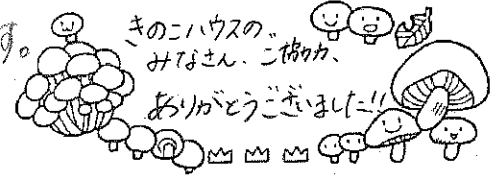 す。
きのこハウスの
みなさん、ご協力、
ありがとうございました!!